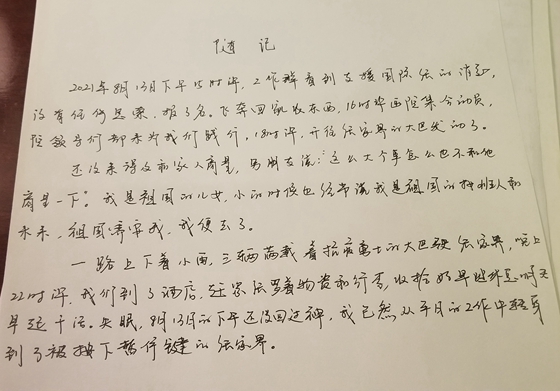 随记
2021年8月13日下午15时许，工作群看到支援国际张的消息，
没有任何思索，报了名。飞奔回家收东西，16时毕回院集合动员，
院领导们都来为我们践行，18时许，开往张家界的大巴发动了。
还没来得及和家人商量，男朋友说：这么大个事怎么也不和他
商量一下。我是祖国的儿女，小的时候也经常说我是祖国的
未来，祖国需要我，我便去了。
一路上下着小雨，三辆满载着抗疫勇士的大巴驶张家界，晚上
22时许，我们到了酒店，大家张罗着物资和行李，收拾好早些休息明天
早起干活。失眠，8月13日的下午还没回过神，我已然从平日的工作中转
到了被按下暂停键的张家界。